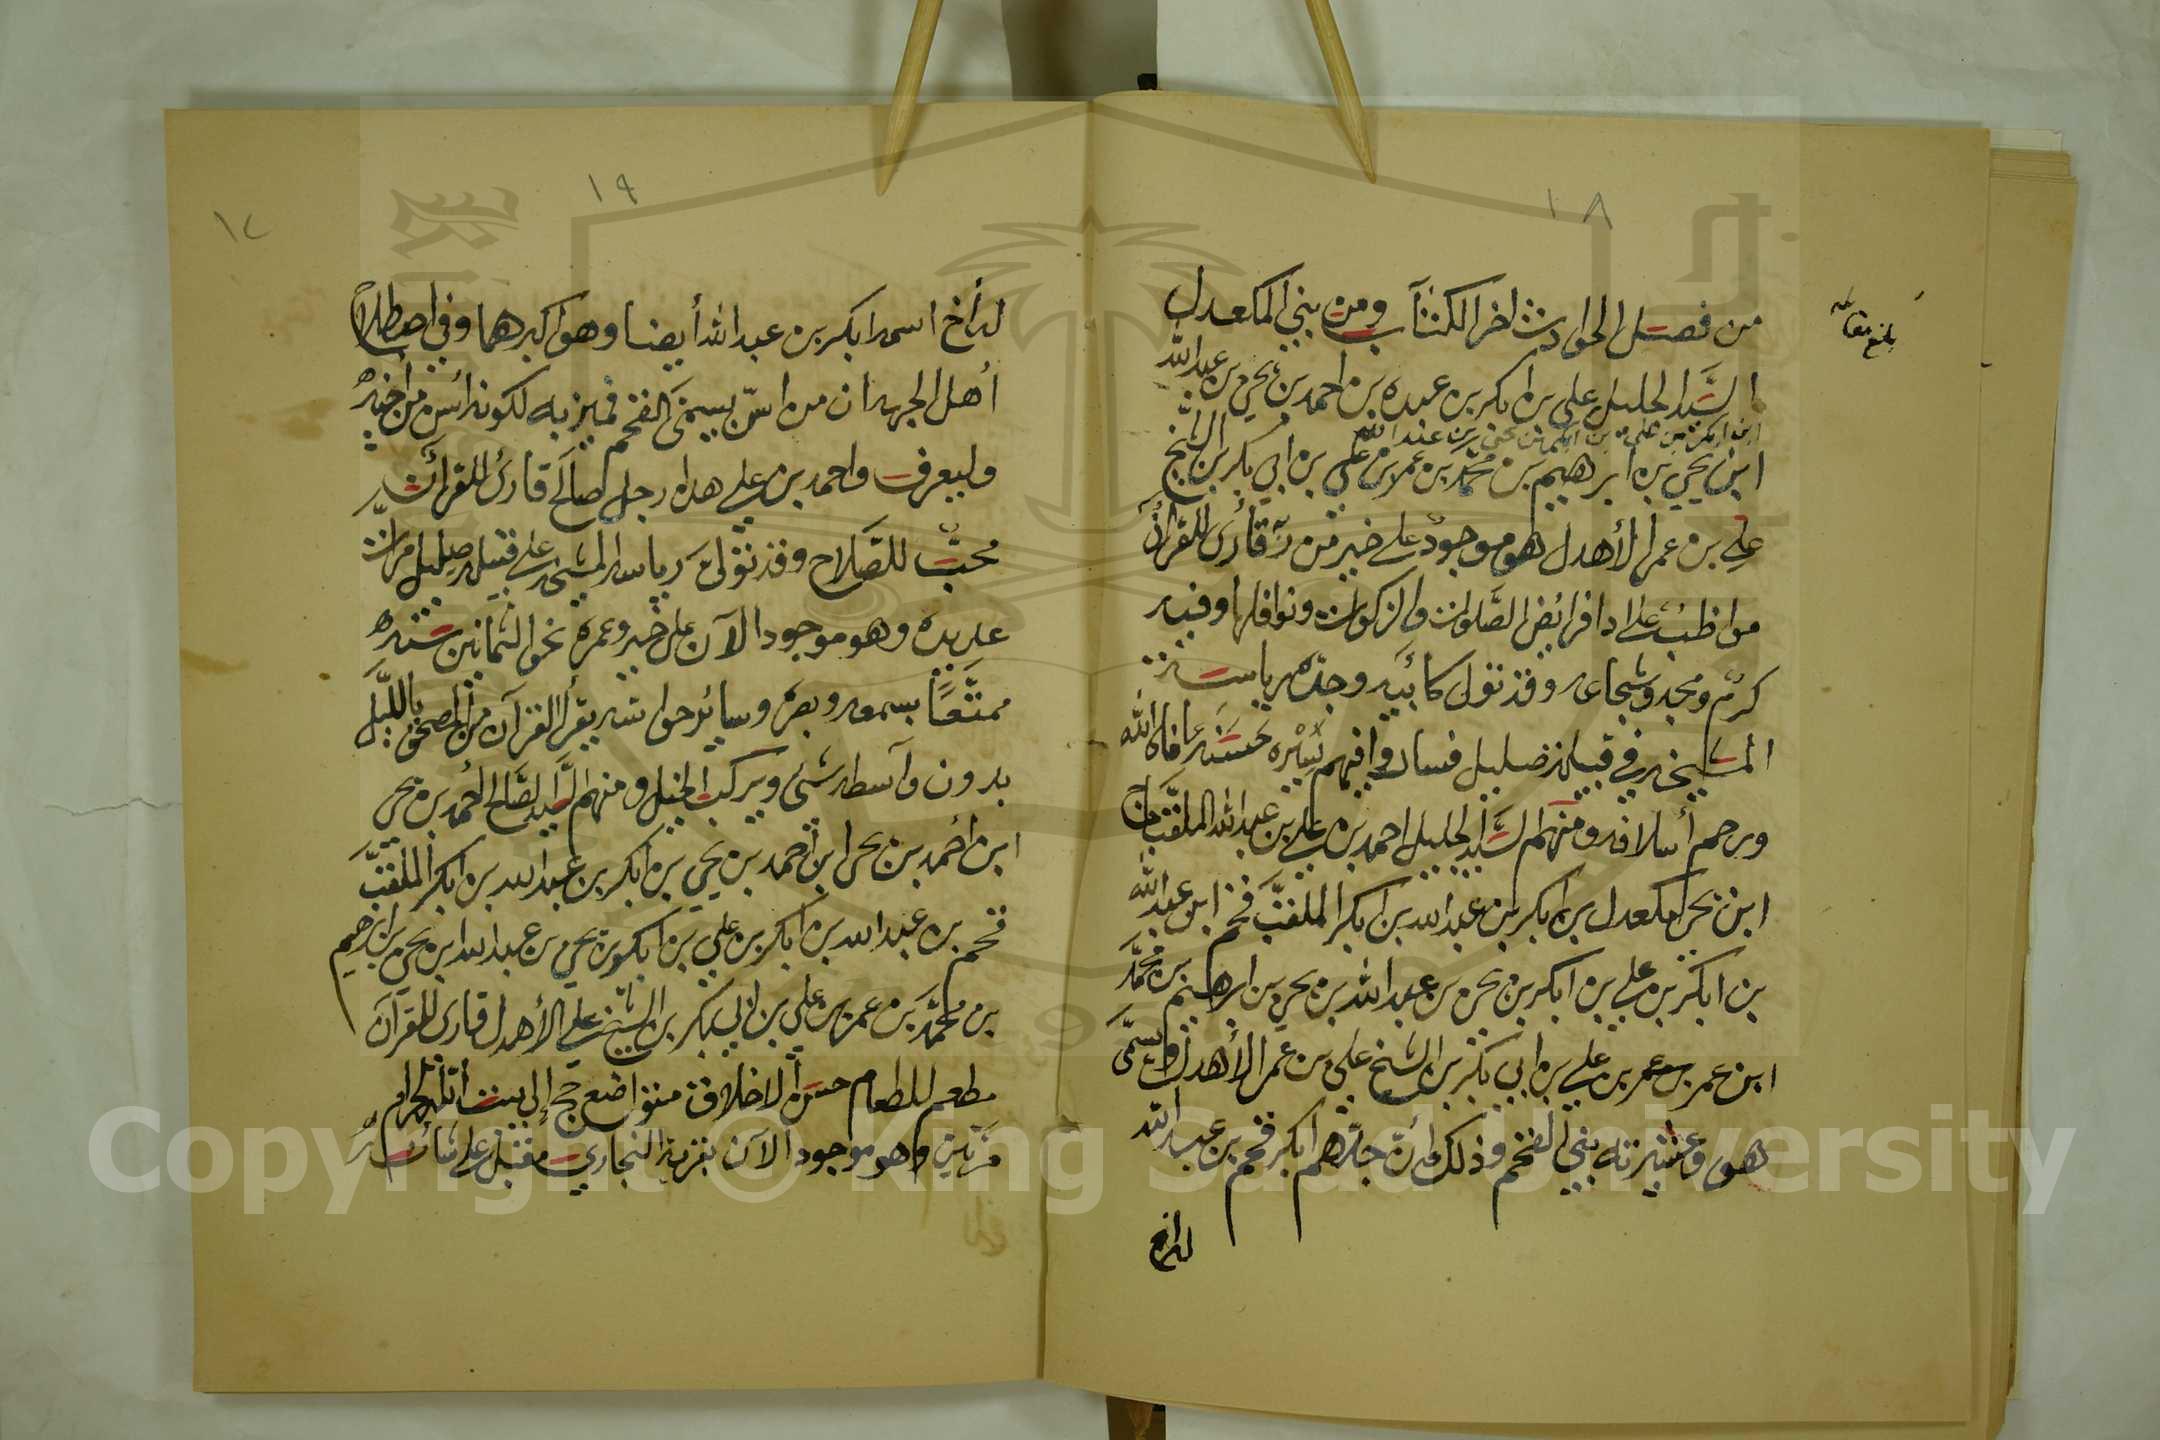 ١٨
بلغ مقابلة
من فصل الحوادث اخر الكتاب ومن بني المكعدل
السَّيد الجليل علي بن ابكر بن عبده بن احمد بن يحيى بن عبدالله
ابن ابكر بن علي بن ابكر بن يحيى بن عبد الله
ابن يحيى بن ابرهيم بن محمَّد بن عمر بن علي بن ابي بكر بن الشيخ
علي بن عمر الأهدل هو موجود على خير من ربه قارئ للقرآن
مواظب على ادا فرائض الصَّلوات والزكوات ونوافلها وفيه
كرم ومجد وشجاعه وقد تولى كأبيه وجده رياسة
المشيخه في قبيلة صليل فسار فيهم سيره حسنه عافاه الله
ورحم أسلافه ومنهم السَّيد الجليل احمد بن علي بن عبدالله الملقَّب
ابن يحيى المكعدل بن ابكر بن عبد الله بن ابكر الملقَّب فخم ابن عبدالله
بن ابكر بن علي بن ابكر بن يحيى بن عبد الله بن يحيى بن ابرهيم بن محمَّد
ابن عمر بن علي بن ابي بكر بن الشيخ علي بن عمر الأهدل ويسمَّى
هو وعشيرته بني الفخم وذلك أن جدهم ابكر فخم بن عبد الله
له اخ
١٩
١٢
له أخ اسمه ابكر بن عبد الله أيضا وهو اكبرهما وفي اصطلاح
أهل الجهه ان من اسّن يسمى الفخم فميز به لكونه اسن من أخيه
وليعرف واحمد بن علي هذا رجل صالح قارئ للقرآن
محبّ للصَّلاح وقد تولى رياسة المشيخه على قبيلة صليل مرات
عديده وهو موجود الآن على خير وعمره نحو الثمانين سنه
ممتَّعاً بسمعه وبصره وسائر حواسه يقرأ القرآن من المصحف بالليل
بدون واسطه شئ ويركب الخيل ومنهم السَّيد الصَّالح احمد بن يحيى
ابن أحمد بن يحيى ابن أحمد بن يحيى بن ابكر بن عبد الله بن ابكر الملقّب
فخم بن عبد الله بن ابكر بن علي بن ابكر بن يحيى بن عبد الله ابن يحيى بن ابرهيم
بن محمَّد بن عمر بن علي بن ابي بكر بن الشيخ علي الأهدل قارئ للقرآن
مطعم للطعام حسن الاخلاق متواضع حج إلى بيت الله الحرام
مرّتين وهو موجود الآن بقرية النجاري مقبل على شأنه